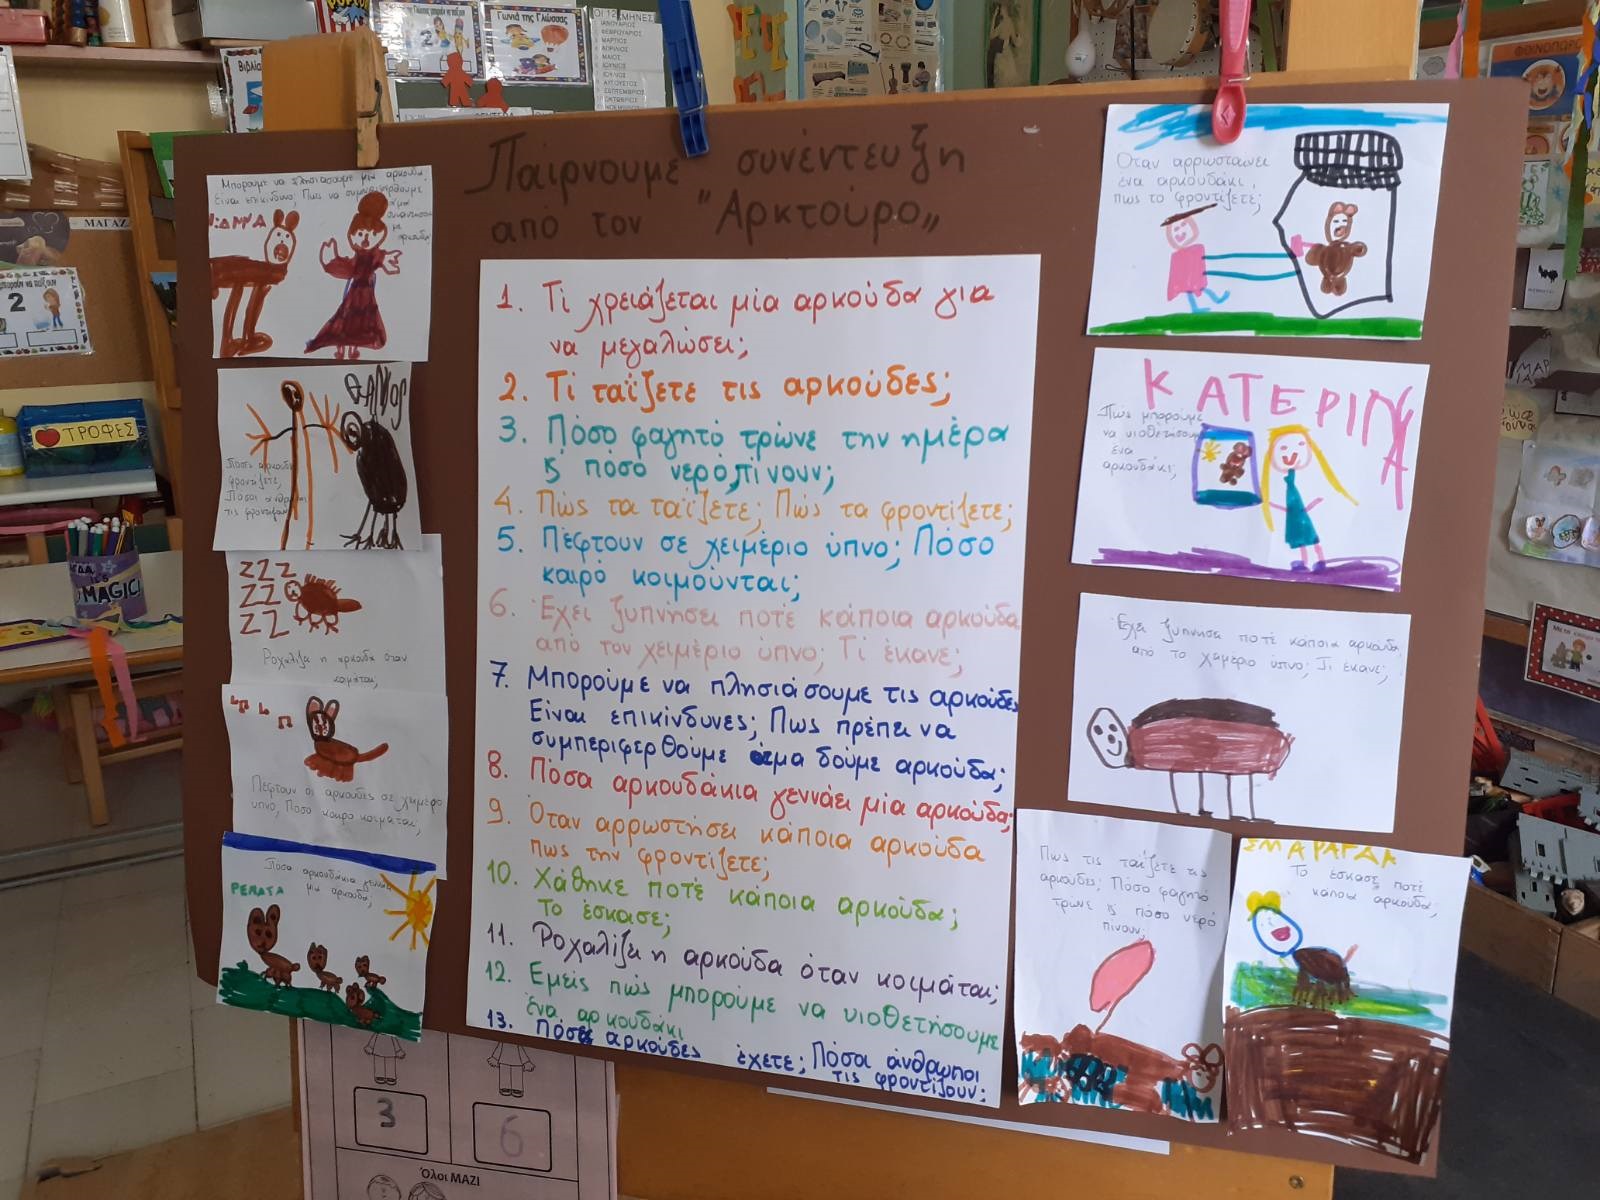 Παίρνουμε συνέντευξη
από τον "Αρκτούρο"
1. Τί χρειάζεται μία αρκούδα για
να μεγαλώσει;
2. Τί ταΐζετε τις αρκούδες;
3. Πόσο φαγητό τρώνε την ημέρα
& πόσο νερό πίνουν;
4. Πώς τα ταΐζετε; Πώς τα φροντίζετε;
5. Πέφτουν σε χειμέριο ύπνο; Πόσο
καιρό κοιμούνται;
6. Έχει ξυπνήσει ποτέ κάποια αρκούδα
από τον χειμέριο ύπνο; Τί έκανε;
7. Μπορούμε να πλησιάσουμε τις αρκούδες
Είναι επικίνδυνες; Πως πρέπει να
συμπεριφερθούμε άμα δούμε αρκούδα;
8. Πόσα αρκουδάκια γεννάει μία αρκούδα;
9. Όταν αρρωστήσει κάποια αρκούδα
πως την φροντίζετε;
10. Χάθηκε ποτέ κάποια αρκούδα;
Το έσκασε;
11. Ροχαλίζει η αρκούδα όταν κοιμάται;
12. Εμείς πώς μπορούμε να υιοθετήσουμε
ένα αρκουδάκι
13. Πόσες αρκούδες έχετε; Πόσοι άνθρωποι
τις φροντίζουν;
Μπορούμε να πλησιάσουμε μία αρκούδα.
Είναι επικίνδυνο; Πως να συμπεριφερθούμε
ΘΑΝΟΣ
Πόσες αρκούδες
φροντίζετε;
Πόσοι άνθρωποι
τις φροντίζουν
ZZZ
ZZ
ZZ
Ροχαλίζει η αρκούδα όταν
κοιμάται;
Πέφτουν οι αρκούδες σε χειμέριο
ύπνο; Πόσο καιρό κοιμάται;
Πόσα αρκουδάκια γεννάει
μια αρκούδα;
ΡΕΝΑΤΑ
Όταν αρρωσταίνει
ένα αρκουδάκι,
πως το φροντίζετε;
ΚΑΤΕΡΙΝΑ
Πώς μπορούμε
να υιοθετήσουμε
ένα
αρκουδάκι;
Έχει ξυπνήσει ποτέ κάποια αρκούδα
από το χειμέριο ύπνο; Τι έκανε;
Πως τις ταΐζετε τις
αρκούδες; Πόσο φαγητό
τρώνε & πόσο νερό
πίνουν;
ΣΜΑΡΑΓΔΑ
Το έσκασε ποτέ
κάποια αρκούδα;
Γωνιά της Γλώσσας
ΙΑΝΟΥΑΡΙΟΣ
ΦΕΒΡΟΥΑΡΙΟΣ
ΜΑΡΤΙΟΣ
ΑΠΡΙΛΙΟΣ
ΜΑΙΟΣ
ΙΟΥΝΙΟΣ
ΙΟΥΛΙΟΣ
ΑΥΓΟΥΣΤΟΣ
ΣΕΠΤΕΜΒΡΙΟΣ
ΟΚΤΩΒΡΙΟΣ
ΜΑΓΑΖ
2
ΤΡΟΦΕΣ
MAGIC!
3
6
Όλοι ΜΑΖΙ